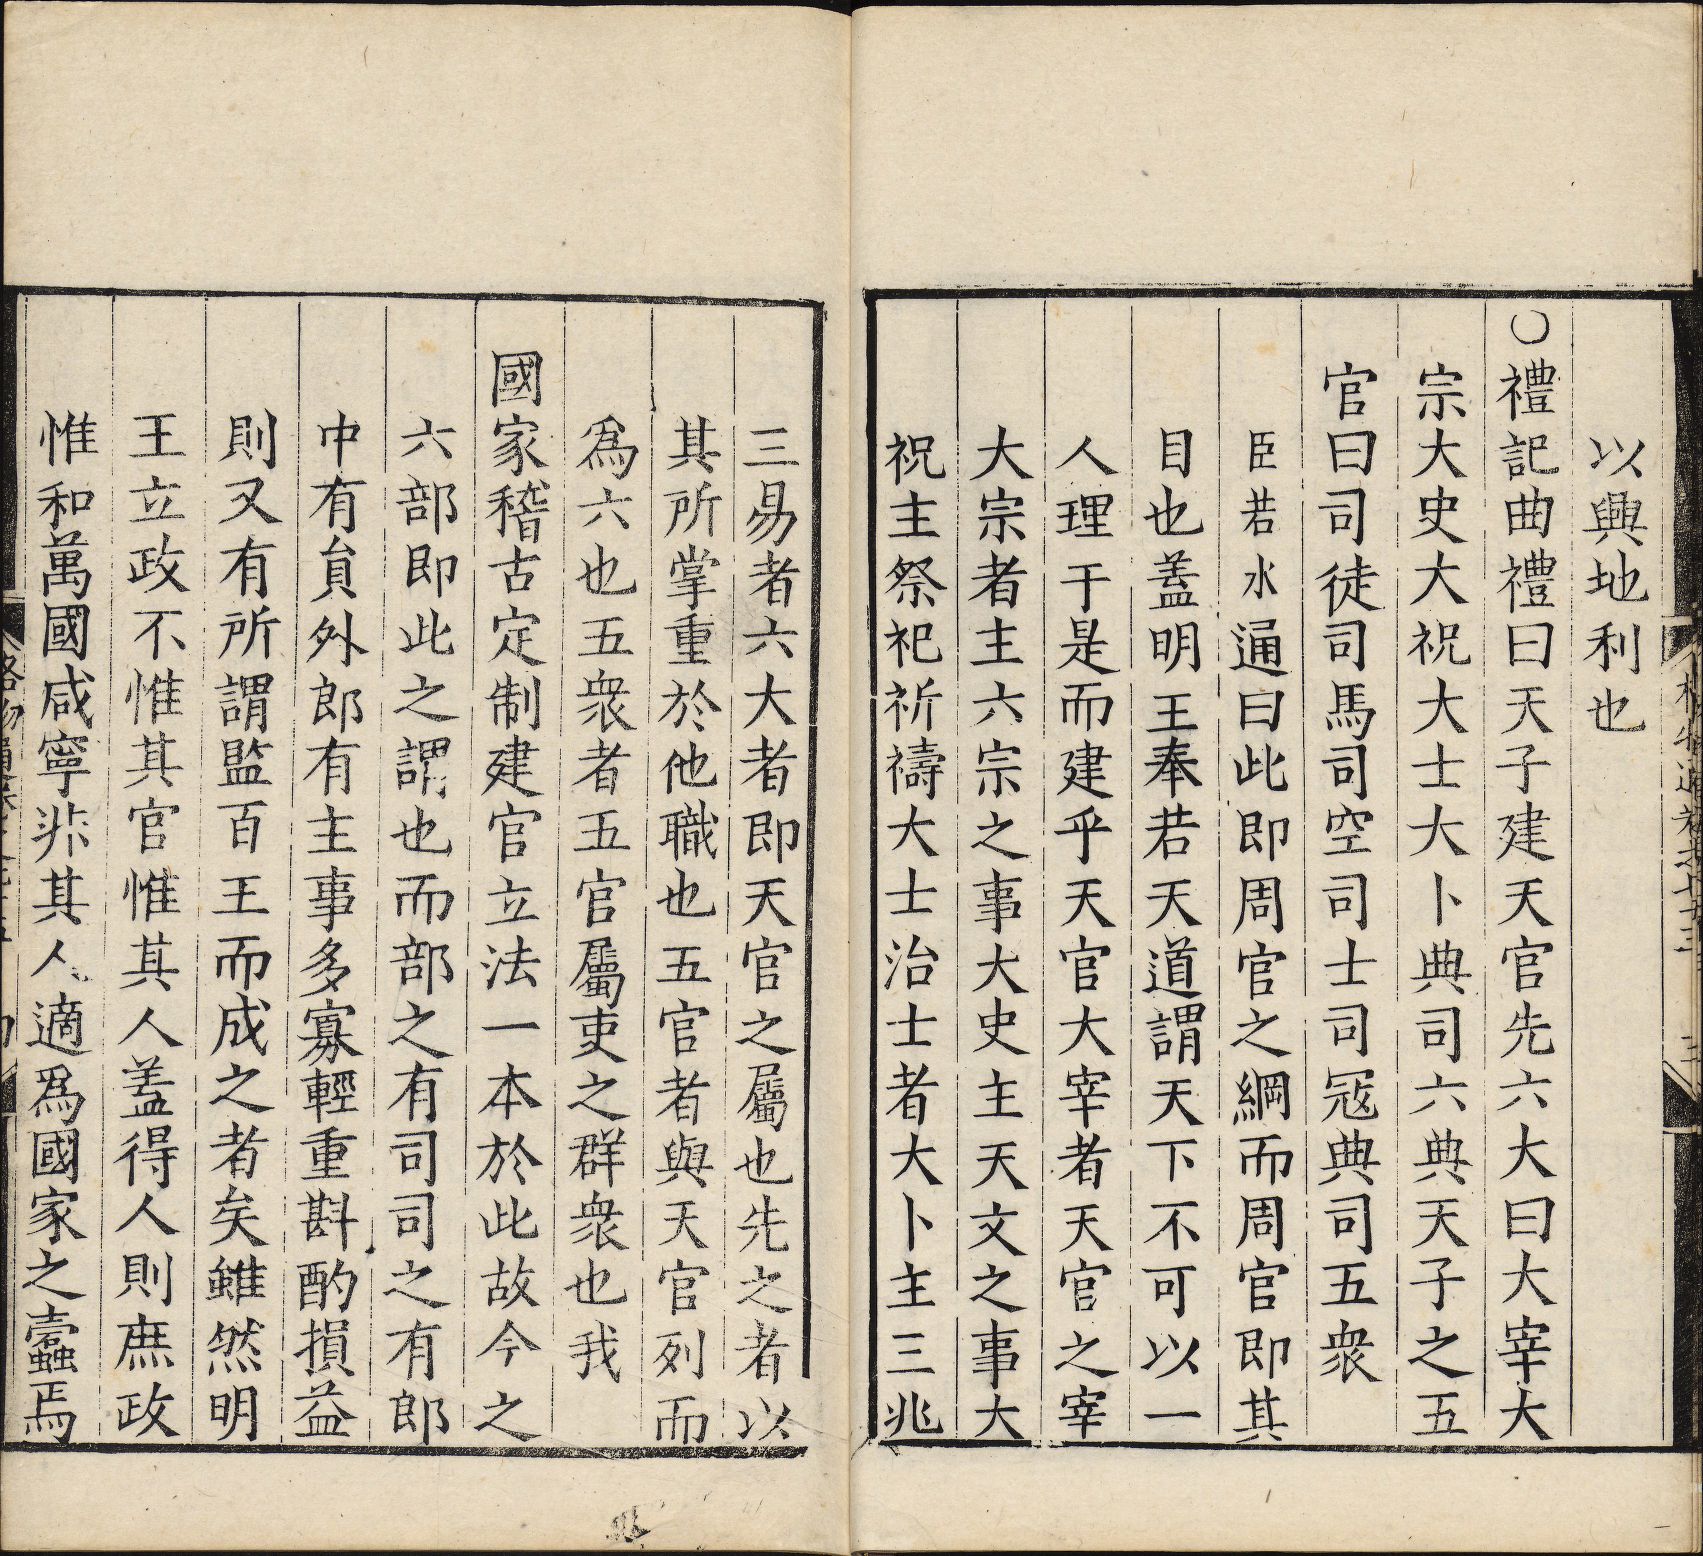 以興地利也
○禮記曲禮曰天子建天官先六大曰大宰大
宗大史大祝大士大卜典司六典天子之五
官曰司徒司馬司空司士司寇典司五衆
臣若水通曰此即周官之綱而周官即其
目也蓋明王奉若天道謂天下不可以一
人理于是而建乎天官大宰者天官之宰
大宗者主六宗之事大史主天文之事大
祝主祭祀祈禱大士治士者大卜主三兆
三易者六大者即天官之屬也先之者以
其所掌重於他職也五官者與天官列而
爲六也五衆者五官屬吏之群衆也我
國家稽古定制建官立法一本於此故今之
六部即此之謂也而部之有司司之有郎
中有員外郎有主事多寡輕重斟酌損益
則又有所謂監百王而成之者矣雖然明
王立政不惟其官惟其人蓋得人則庶政
惟和萬國咸寧非其人適爲國家之蠹焉